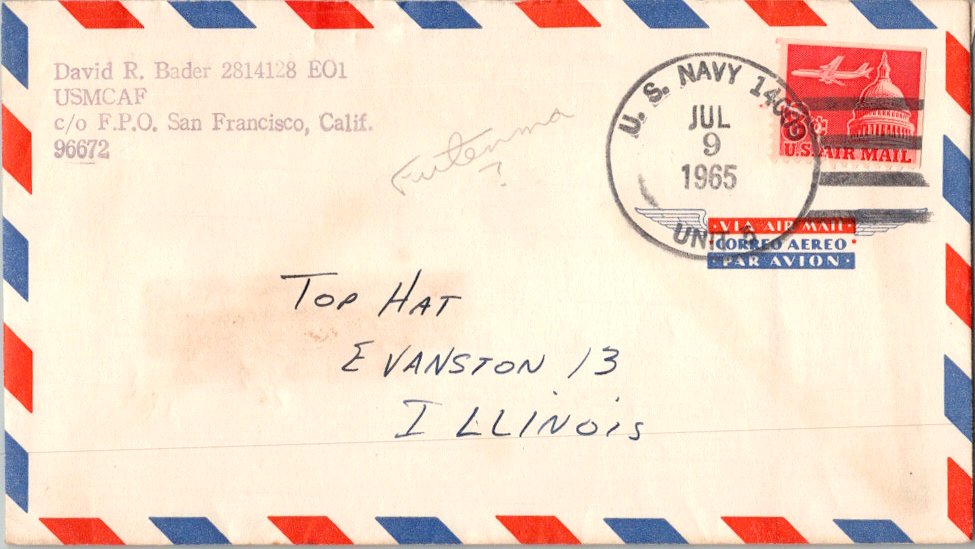 David R. Bader 2814128 E01
USMCAF
c/o F.P.O. San Francisco, Calif.
96672
Futenma
?
U. S. NAVY
JUL
9
1965
UNIT
U.S. AIR MAIL
·VIA AIR MAIL·
·CORREO AEREO·
·PAR AVION·
TOP HAT
EVANSTON 13
ILLINOIS